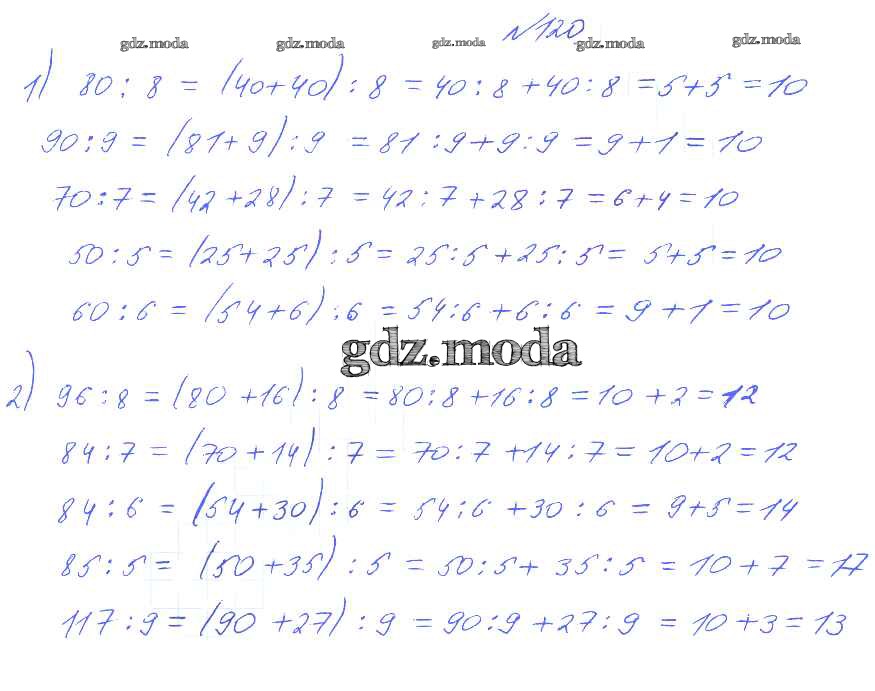 №120
gdz.moda gdz.moda gdz.moda gdz.moda gdz.moda
1) 80 : 8 = (40+40) : 8 = 40 : 8 + 40 : 8 = 5+5 = 10
90 : 9 = (81+9) : 9 = 81 : 9 + 9 : 9 = 9+1 = 10
70 : 7 = (42+28) : 7 = 42 : 7 + 28 : 7 = 6+4 = 10
50 : 5 = (25+25) : 5 = 25 : 5 + 25 : 5 = 5+5 = 10
60 : 6 = (54+6) : 6 = 54 : 6 + 6 : 6 = 9+1 = 10
gdz.moda
2) 96 : 8 = (80+16) : 8 = 80 : 8 + 16 : 8 = 10+2 = 12
84 : 7 = (70+14) : 7 = 70 : 7 + 14 : 7 = 10+2 = 12
84 : 6 = (54+30) : 6 = 54 : 6 + 30 : 6 = 9+5 = 14
85 : 5 = (50+35) : 5 = 50 : 5 + 35 : 5 = 10+7 = 17
117 : 9 = (90+27) : 9 = 90 : 9 + 27 : 9 = 10+3 = 13